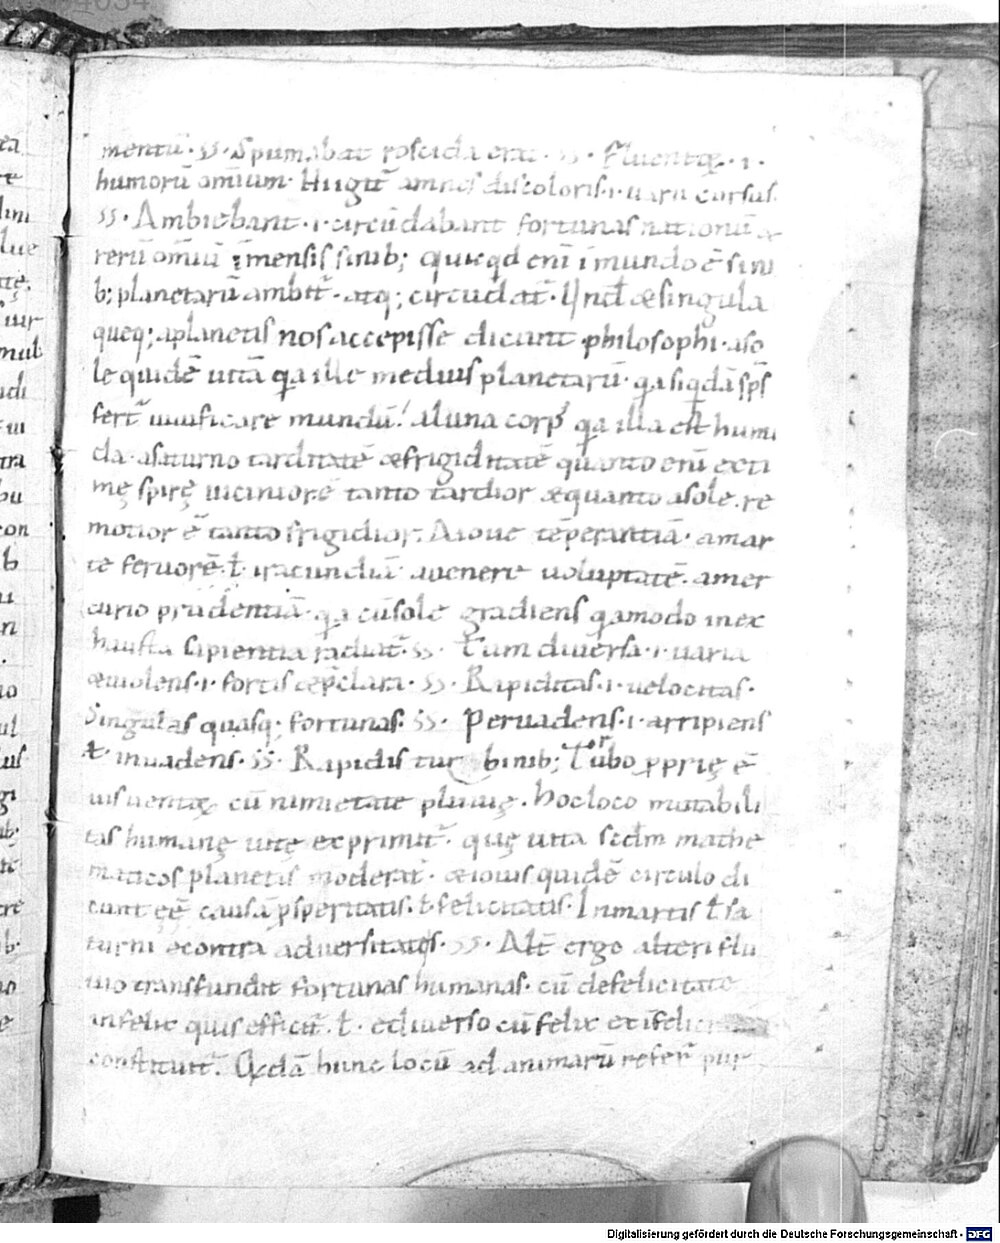 mentū · ss · Spumabat roscida erat · ss · fluentoꝝ · i ·
humorū omnium · Hii igit̄ amnes discoloris · i · uarii cursus
ss · Ambiebant · i · circūdabant fortunas nationū &
rerū omniū īmensis sinib; quicqd enī ī mundo ē sinu
b; planetarū ambit̄ · atq; circūdat̄ · Und̄ & singula
queq; a planetis nos accepisse dicunt philosophi · a so
le quidē uitā qa ille medius planetarū · qa siqdā sps
fert̄ uiuificare mundū · a luna corp' qa illa est humi
da · a saturno tarditatē & frigiditatē quanto enī exti
mę spirę uiciniorē tanto tardior & quanto a sole re
motior ē tanto frigidior. A ioue tēperantiā · a mar
te feruorē · ł iracundiā a uenere uoluptatē · a mer
curio prudentiā · qa cū sole gradiens q̄amodo inex
hausta sapientia radiat̄ · ss · Tum diuersa · i · uaria
& uiolens · i · fortis & p̄clara · ss · Rapiditas · i · uelocitas ·
Singulas quasq; fortunas · ss · Peruadens · i · arripiens
ł · inuadens · ss · Rapidis tur binib; Turbo ꝓprię ē
uis uentoꝝ cū nimietate pluuię . hoc loco mutabili
tas humanę uitę exprimit̄ · quę uita scdm mathe
maticos planetis moderat̄ · & iouis quidē circulo di
cunt eē causā ꝓsperitatis · ł felicitatis · In martis ł sa
turni econtra aduersitatis · ss · Alt̄ ergo alteri flu
uio transfundit fortunas humanas · cū de felicitate
infelix quis efficit̄ · ł · ediuerso cū felix ex īfelici
constituit̄ . Qdā hunc locū ad animarū refer̄ pur